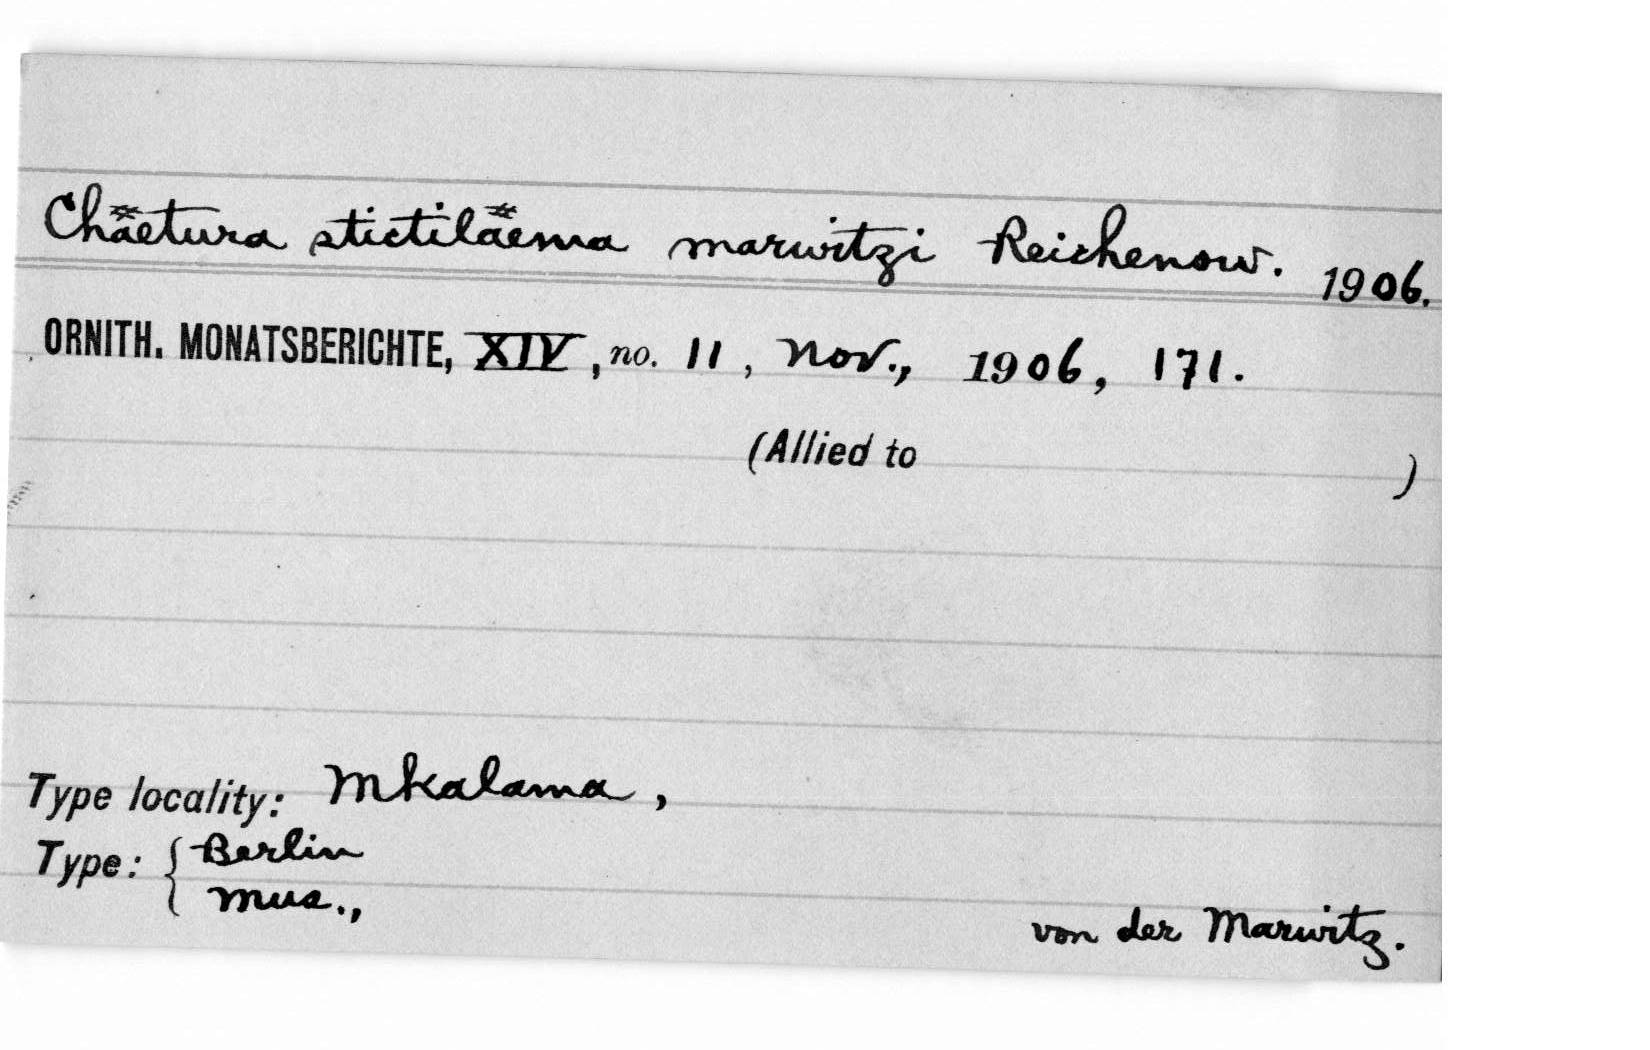 Chäetura stictiläema marwitzi Reichenow. 1906.
ORNITH. MONATSBERICHTE, XIV, no. 11, Nov., 1906, 171.
(Allied to )
Type locality: Mkalama,
Type: { Berlin
Mus.,
von der Marwitz.